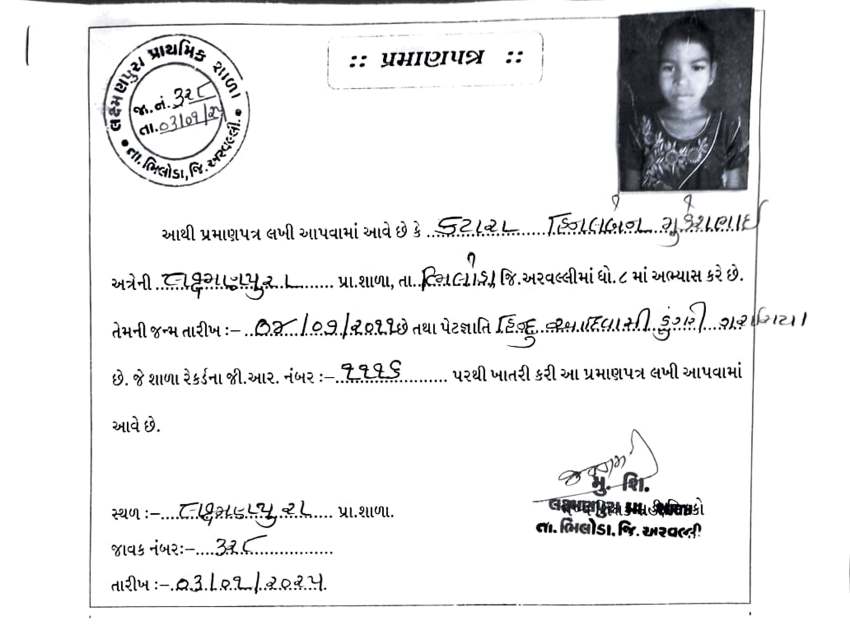 :: પ્રમાણપત્ર ::
લક્ષ્મણપુરા પ્રાથમિક શાળા
જા.નં. ૩૨૮
તા. ૦૩/૦૧/૨૫
તા. ભિલોડા, જિ. અરવલ્લી.
આથી પ્રમાણપત્ર લખી આપવામાં આવે છે કે કટારા હિનલબેન મુકેશભાઈ
અત્રેની લક્ષ્મણપુરા પ્રા.શાળા, તા. ભિલોડા, જિ.અરવલ્લીમાં ધો.૮ માં અભ્યાસ કરે છે.
તેમની જન્મ તારીખ :- ૦૪/૦૧/૨૦૧૧ છે તથા પેટજ્ઞાતિ હિન્દુ આદિવાસી ડુંગરી ગરાસિયા
છે. જે શાળા રેકર્ડના જી.આર. નંબર :- ૧૧૧૬ પરથી ખાતરી કરી આ પ્રમાણપત્ર લખી આપવામાં
આવે છે.
મુ. શિ.
સ્થળ :- લક્ષ્મણપુરા પ્રા.શાળા.
લક્ષ્મણપુરા પ્રા. શાળા
તા. ભિલોડા. જિ. અરવલ્લી
જાવક નંબર:- ૩૨૮
તારીખ :- ૦૩/૦૧/૨૦૨૫.